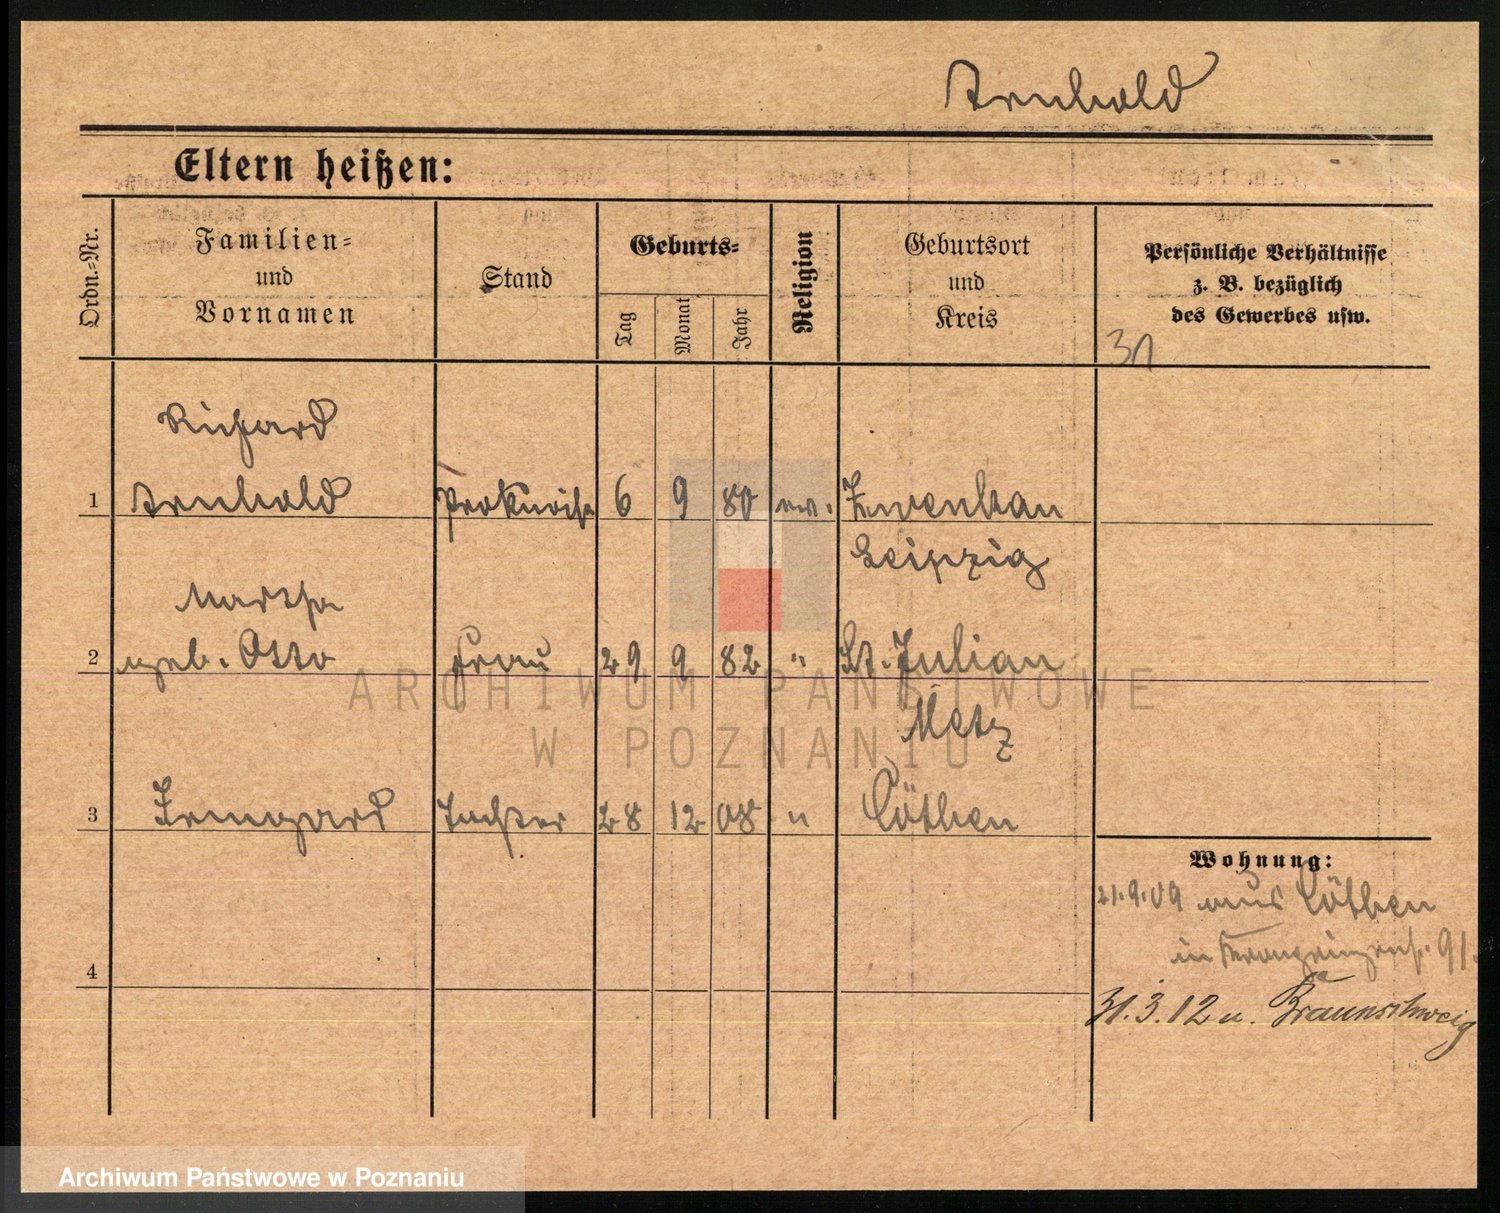 Arnhold
Eltern heißen:
Ordn.-Nr.
Familien-
und
Vornamen
Stand
Geburts-
Tag
Monat
Jahr
Religion
Geburtsort
und
Kreis
Persönliche Verhältnisse
z. B. bezüglich
des Gewerbes usw.
31
Richard
1 Arnhold Prokurist 6 9 80 ev. Zwenkau
Leipzig
Martha
2 geb. Otto Frau 29 9 82 " St. Julian
Metz
3 Irmgard Tochter 28 12 08 " Cöthen
Wohnung:
21.9.09 aus Cöthen
in 91.
4
31.3.12 n. Braunschweig
ARCHIWUM PAŃSTWOWE
W POZNANIU
Archiwum Państwowe w Poznaniu